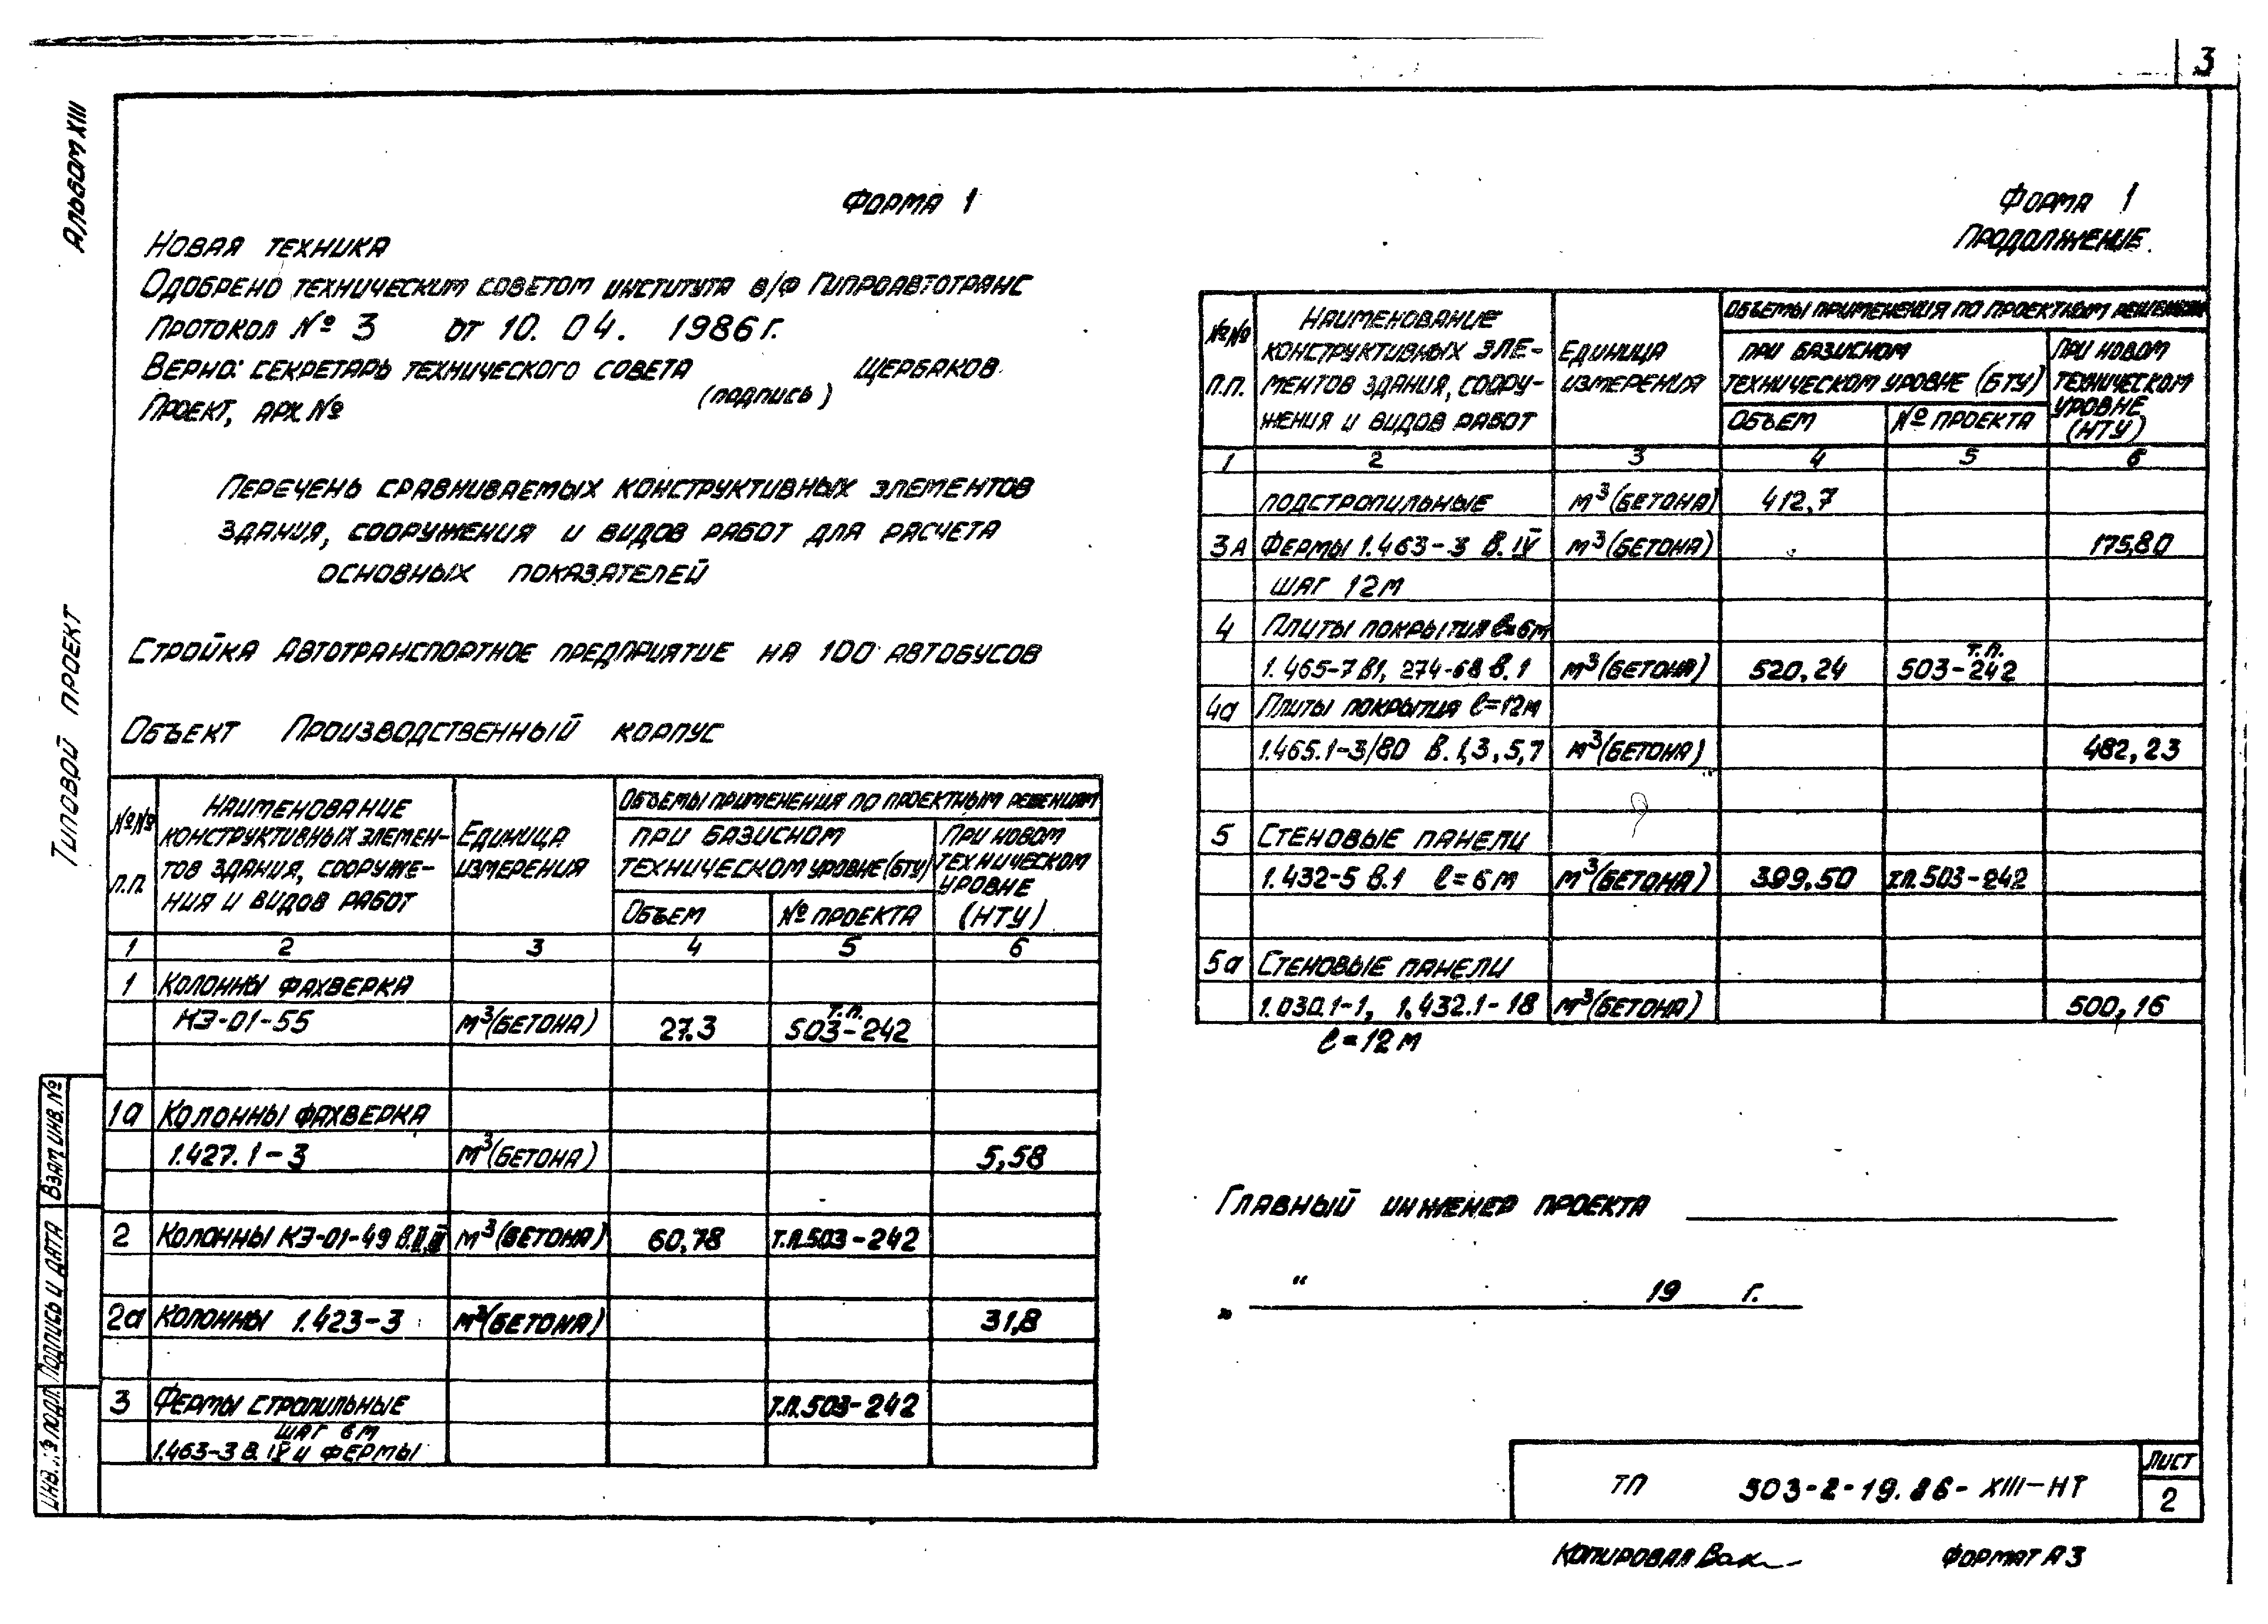 3
Альбом XIII
Типовой проект
Форма 1
Новая техника
Одобрено техническим советом института в/ф Гипроавтотранс
Протокол № 3 от 10. 04. 1986 г.
Верно: секретарь технического совета Щербаков
(подпись)
Проект, арх. №
Перечень сравниваемых конструктивных элементов
здания, сооружения и видов работ для расчета
основных показателей
Стройка Автотранспортное предприятие на 100 автобусов
Объект Производственный корпус
№№ п.п. | Наименование конструктивных элемен- | Единица измерения | Объемы применения по проектным решениям
тов здания, сооруже- | при базисном техническом уровне (БТУ) | при новом техническом уровне (НТУ)
ния и видов работ | Объем | № проекта
1 2 3 4 5 6
1 Колонны фахверка
КЭ-01-55 м³(бетона) 27.3 т.п. 503-242
1а Колонны фахверка
1.427.1-3 м³(бетона) 5,58
2 Колонны КЭ-01-49 в.II,III м³(бетона) 60,78 т.п.503-242
2а Колонны 1.423-3 м³(бетона) 31,8
3 Фермы стропильные т.п.503-242
шаг 6м
1.463-3 в. IV и фермы
Форма 1
Продолжение
№№ п.п. | Наименование | Единица измерения | Объемы применения по проектным решениям
конструктивных эле- | при базисном техническом уровне (БТУ) | при новом техническом уровне (НТУ)
ментов здания, соору-
жения и видов работ | Объем | № проекта
1 2 3 4 5 6
подстропильные м³(бетона) 412,7
3а Фермы 1.463-3 в. IV м³(бетона) 175,80
шаг 12м
4 Плиты покрытия ℓ=6м
1.465-7 в1, 274-68 в.1 м³(бетона) 520,24 т.п. 503-242
4а Плиты покрытия ℓ=12м
1.465.1-3/80 в.1,3,5,7 м³(бетона) 482,23
5 Стеновые панели
1.432-5 в.1 ℓ=6м м³(бетона) 399,50 т.п.503-242
5а Стеновые панели
1.030.1-1, 1.432.1-18 м³(бетона) 500,16
ℓ=12м
Главный инженер проекта
„ “ 19 г.
Взам.инв.№
Подпись и дата
Инв. № подл.
ТП 503-2-19.86-XIII-НТ
Лист
2
Копировал
Формат А3